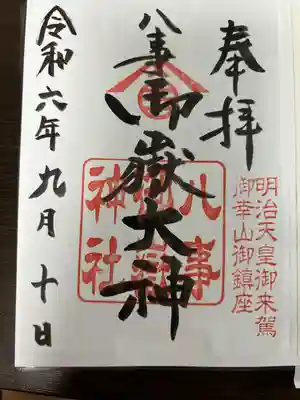 奉拝
明治天皇御来駕
御幸山御鎮座
八事御嶽大神
八事
御嶽
神社
令和六年九月十日